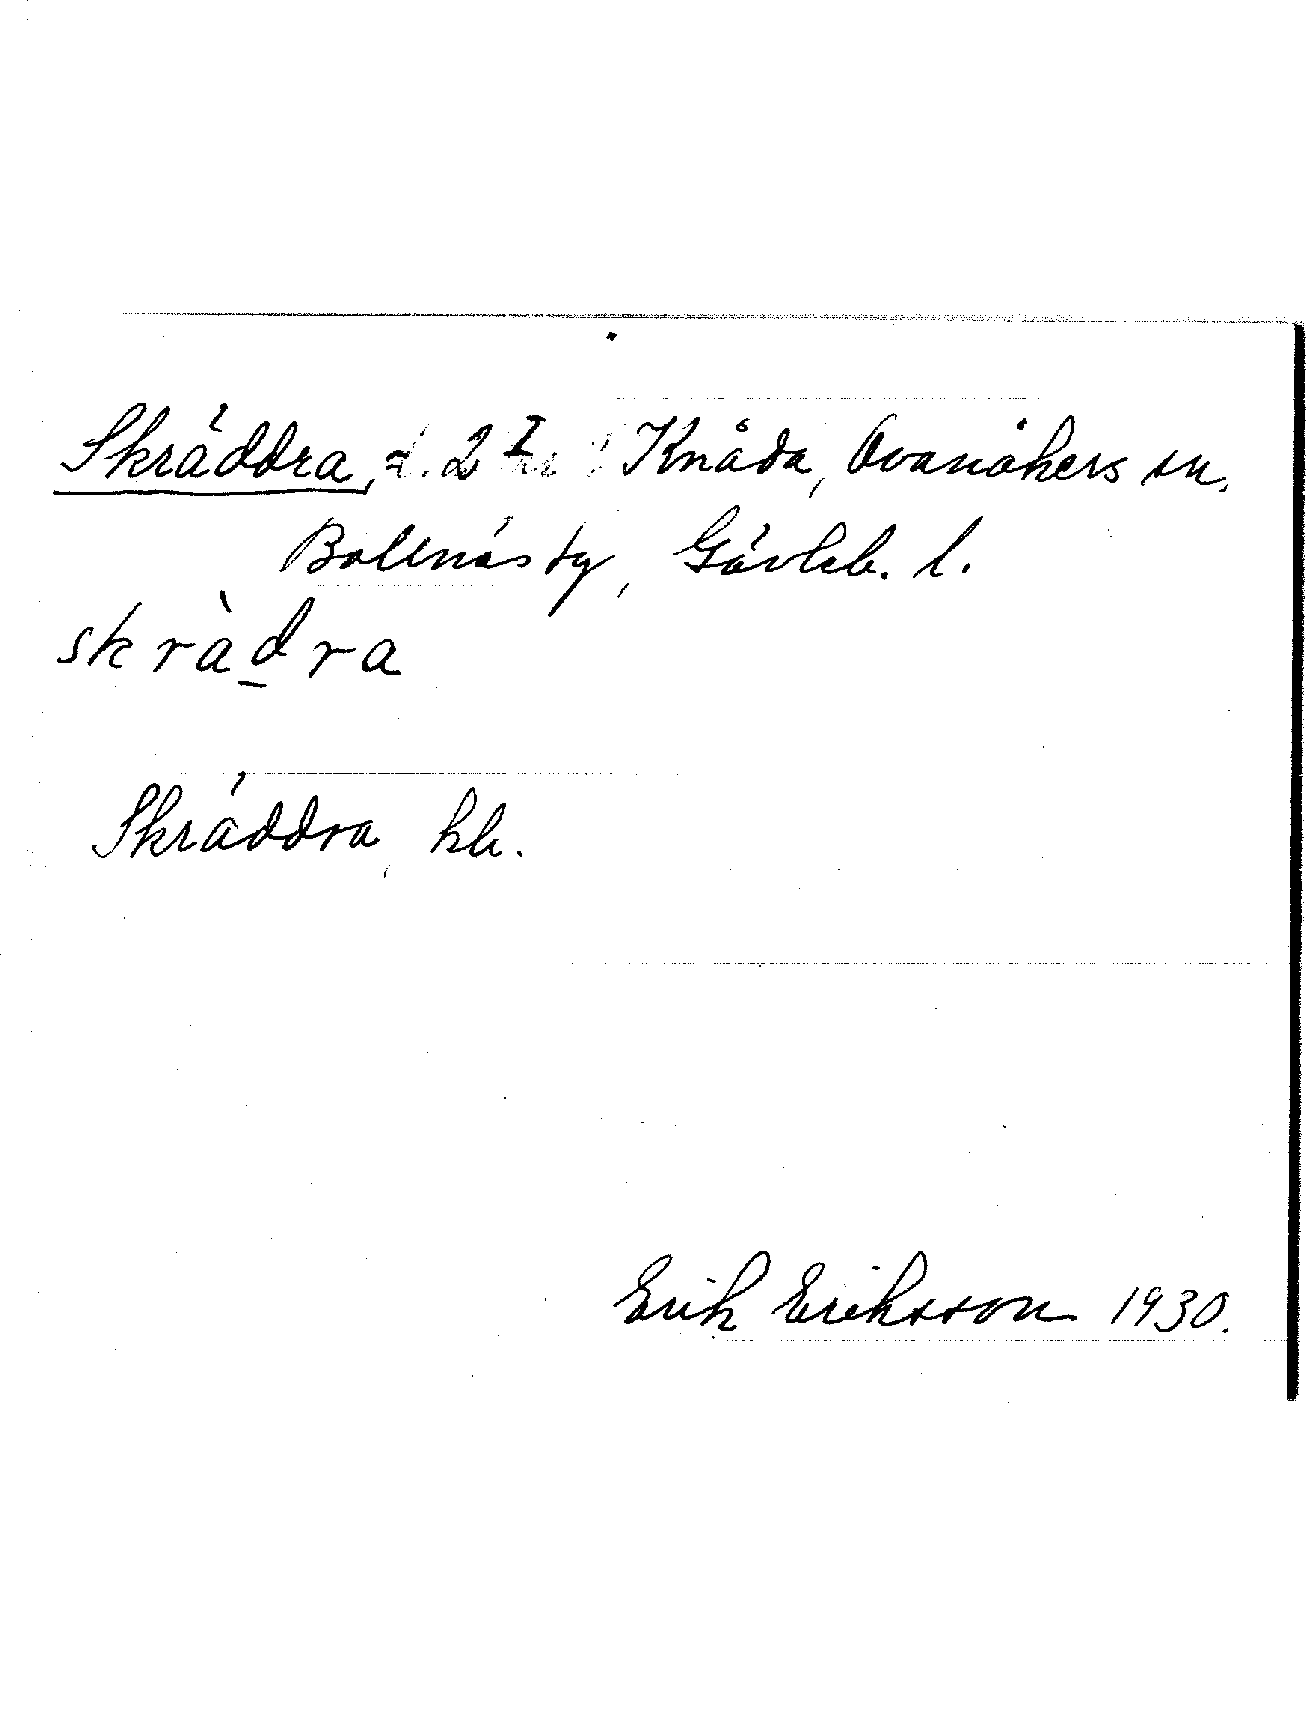 Skräddra, d. 2 I Knåda, Ovanåkers sn.
Bollnäs tg, Gävleb. l.
skràd̲ra
Skräddra, kk.
Erik Eriksson 1930.